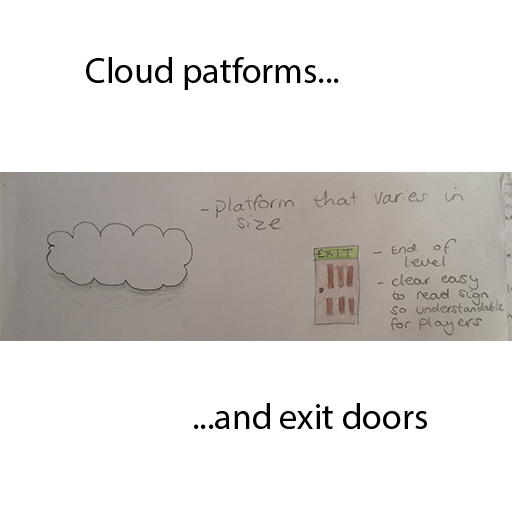 Cloud patforms...
- platform that varies in
size
EXIT
- End of
level
- clear easy
to read sign
so understandable
for players
...and exit doors